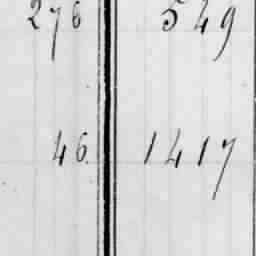 276 549
46. 1417